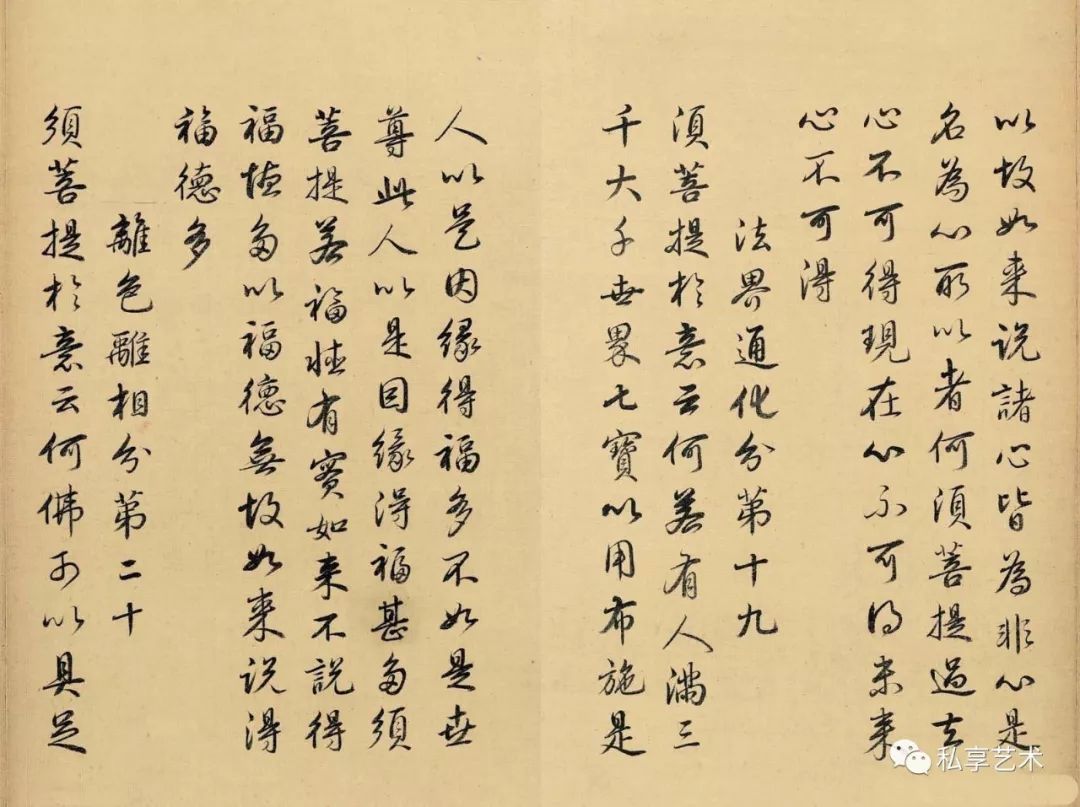 以故如来說諸心皆為非心是
名為心所以者何須菩提過去
心不可得現在心不可得未来
心不可得
法界通化分第十九
須菩提於意云何若有人滿三
千大千世界七寶以用布施是
人以是因緣得福多不如是世
尊此人以是因緣得福甚多須
菩提若福德有實如来不說得
福德多以福德無故如来說得
福德多
離色離相分第二十
須菩提於意云何佛可以具足
私享艺术